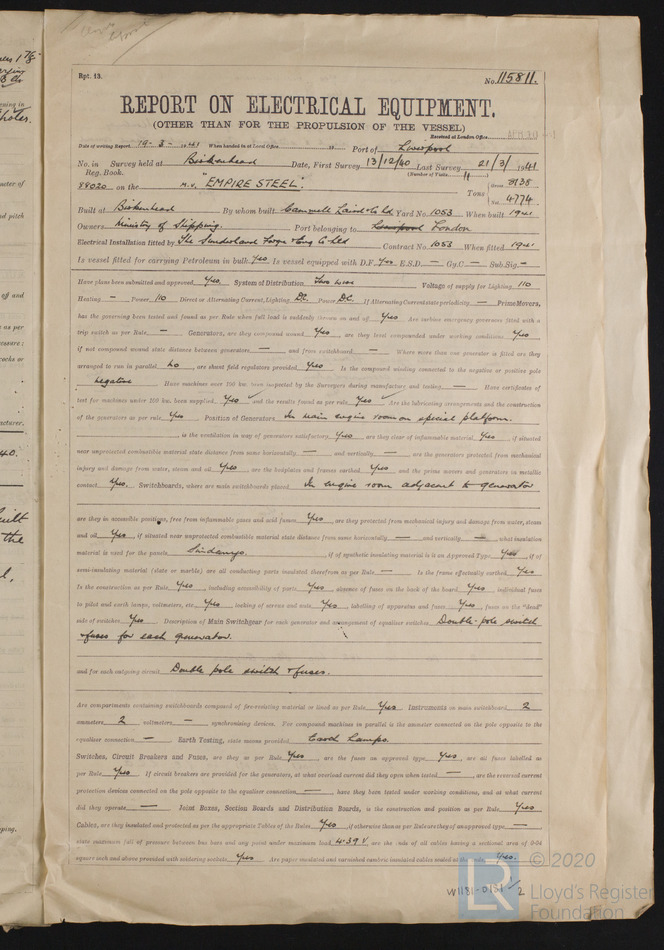 Rpt. 13.
No. 115811.
REPORT ON ELECTRICAL EQUIPMENT.
(OTHER THAN FOR THE PROPULSION OF THE VESSEL)
Received at London Office
Date of writing Report 19-3-1941 When handed in at Local Office 19 Port of Liverpool
No. in Survey held at Birkenhead Date, First Survey 13/12/40 Last Survey 21/3/1941
Reg. Book. (Number of Visits 11)
on the M.V. "EMPIRE STEEL". Tons Gross 8138
Net 4774
Built at Birkenhead By whom built Cammell Laird & Co Ltd Yard No. 1053 When built 1941
Owners Ministry of Shipping. Port belonging to Liverpool London
Electrical Installation fitted by The Sunderland Forge & Eng Co Ltd Contract No. 1053 When fitted 1941
Is vessel fitted for carrying Petroleum in bulk Yes Is vessel equipped with D.F. Yes E.S.D. — Gy.C — Sub.Sig —
Have plans been submitted and approved Yes System of Distribution Two wire Voltage of supply for Lighting 110
Heating — Power 110 Direct or Alternating Current, Lighting DC Power DC. If Alternating Current state periodicity — Prime Movers,
has the governing been tested and found as per Rule when full load is suddenly thrown on and off Yes Are turbine emergency governors fitted with a
trip switch as per Rule — Generators, are they compound wound Yes, are they level compounded under working conditions Yes
if not compound wound state distance between generators — and from switchboard — Where more than one generator is fitted are they
arranged to run in parallel No, are shunt field regulators provided Yes Is the compound winding connected to the negative or positive pole
negative Have machines over 100 kw. been inspected by the Surveyors during manufacture and testing — Have certificates of
test for machines under 100 kw. been supplied Yes and the results found as per rule Yes Are the lubricating arrangements and the construction
of the generators as per rule Yes Position of Generators In main engine room on special platform.
, is the ventilation in way of generators satisfactory Yes are they clear of inflammable material Yes, if situated
near unprotected combustible material state distance from same horizontally — and vertically — are the generators protected from mechanical
injury and damage from water, steam and oil Yes are the bedplates and frames earthed Yes and the prime movers and generators in metallic
contact Yes. Switchboards, where are main switchboards placed In engine room adjacent to generator
are they in accessible positions, free from inflammable gases and acid fumes Yes, are they protected from mechanical injury and damage from water, steam
and oil Yes, if situated near unprotected combustible material state distance from same horizontally — and vertically — what insulation
material is used for the panels Sindanyo. , if of synthetic insulating material is it an Approved Type Yes, if of
semi-insulating material (slate or marble) are all conducting parts insulated therefrom as per Rule — Is the frame effectually earthed Yes
Is the construction as per Rule Yes, including accessibility of parts Yes, absence of fuses on the back of the board Yes, individual fuses
to pilot and earth lamps, voltmeters, etc. Yes locking of screws and nuts Yes, labelling of apparatus and fuses Yes, fuses on the "dead"
side of switches Yes Description of Main Switchgear for each generator and arrangement of equaliser switches Double-pole switch
& fuses for each generator.
and for each outgoing circuit Double pole switch & fuses.
Are compartments containing switchboards composed of fire-resisting material or lined as per Rule Yes Instruments on main switchboard 2
ammeters 2 voltmeters — synchronising devices. For compound machines in parallel is the ammeter connected on the pole opposite to the
equaliser connection — Earth Testing, state means provided Earth Lamps.
Switches, Circuit Breakers and Fuses, are they as per Rule Yes, are the fuses an approved type Yes, are all fuses labelled as
per Rule Yes If circuit breakers are provided for the generators, at what overload current did they open when tested —, are the reversed current
protection devices connected on the pole opposite to the equaliser connection —, have they been tested under working conditions, and at what current
did they operate — Joint Boxes, Section Boards and Distribution Boards, is the construction and position as per Rule Yes
Cables, are they insulated and protected as per the appropriate Tables of the Rules Yes if otherwise than as per Rule are they of an approved type —
state maximum fall of pressure between bus bars and any point under maximum load 4.39 V are the ends of all cables having a sectional area of 0.04
square inch and above provided with soldering sockets Yes Are paper insulated and varnished cambric insulated cables sealed at the ends Yes.
W1181-0131 1/2
LR
© 2020
Lloyd's Register
Foundation